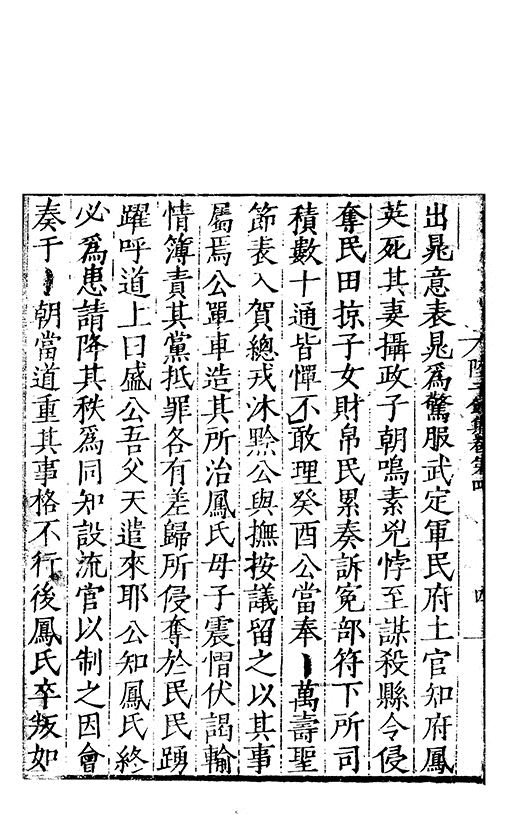 出晁意表晁爲驚服武定軍民府土官知府鳳
英死其妻攝政子朝鳴素兇悖至謀殺縣令侵
奪民田掠子女財帛民累奏訴寃部符下所司
積數十通皆憚不敢理癸酉公當奉萬壽聖
節表入賀總戎沐黔公與撫按議留之以其事
屬焉公單車造其所治鳳氏母子震慴伏謁輸
情簿責其黨抵罪各有差歸所侵奪於民民踴
躍呼道上曰盛公吾父天遣來耶公知鳳氏終
必爲患請降其秩爲同知設流官以制之因會
奏于朝當道重其事格不行後鳳氏卒叛如